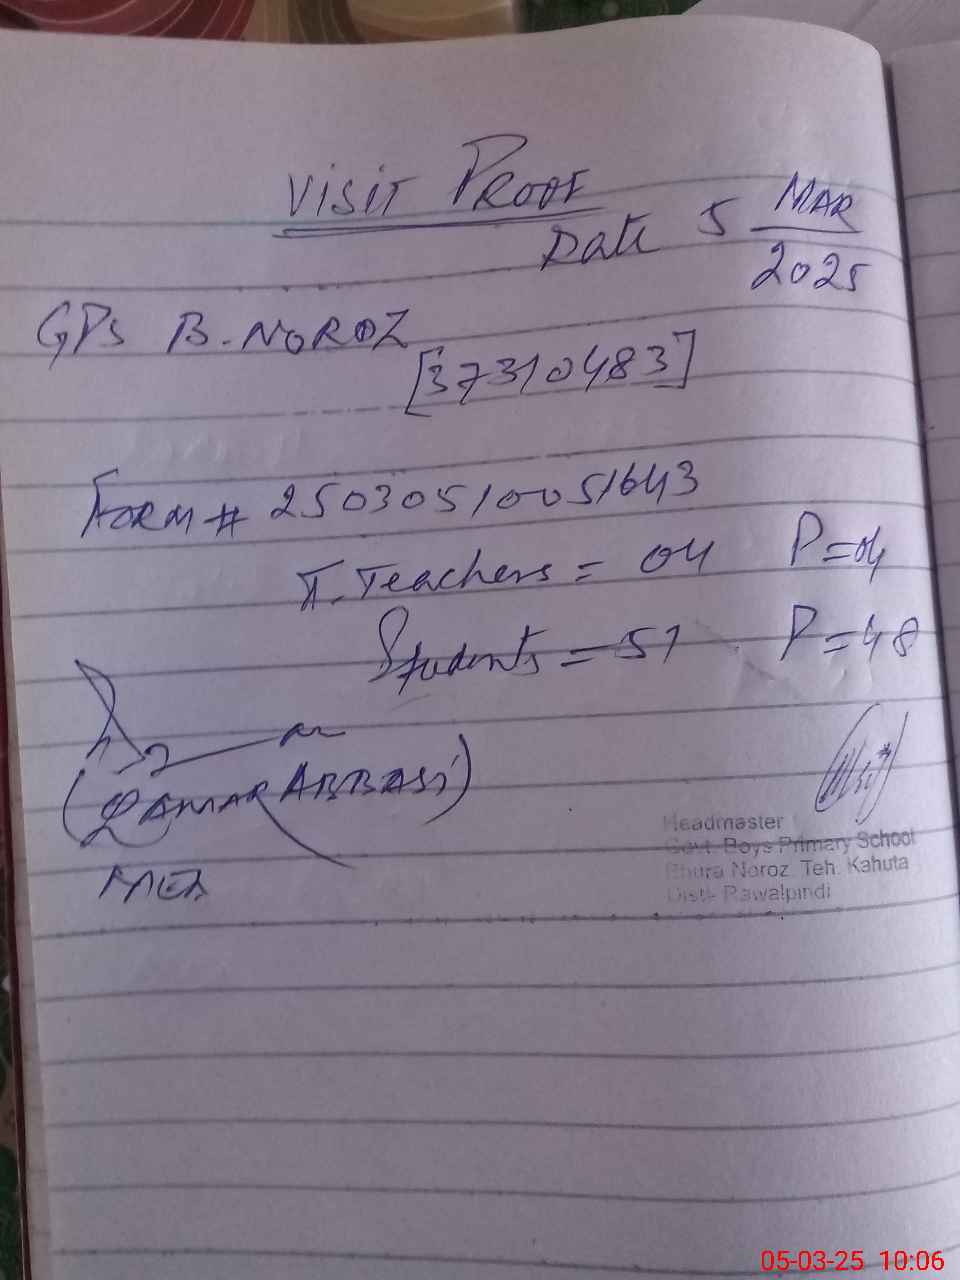 VISIT PROOF
Date 5 MAR
2025
GPS B. NOROZ
[37310483]
FORM # 25030510051643
T. Teachers = 04 P=04
Students = 51 P=48
(QAMAR ABBASI)
MEA
Headmaster
Govt. Boys Primary School
Bhura Noroz Teh. Kahuta
Distt- Rawalpindi
05-03-25 10:06